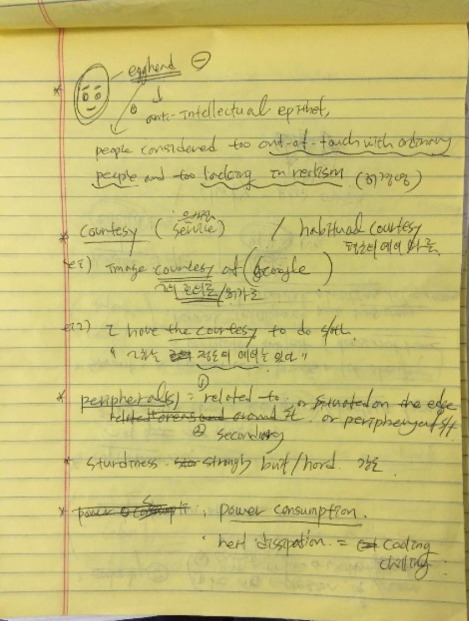 * egghead ⊖
anti-intellectual epithet,
people considered too out-of-touch with ordinary
people and too lacking in realism (허경영)
* courtesy ( service) / habitual courtesy
평소의 예의 바름
ex) Image courtesy of (google )
ex2) I have the courtesy to do s/th.
" 그 정도의 예의는 있다"
* peripheral(s) = ① related to or situated on the edge
or periphery of s/t
② secondary
* sturdiness strongly built/hard. 강도
* power consumption.
heat dissipation = cooling
chilling